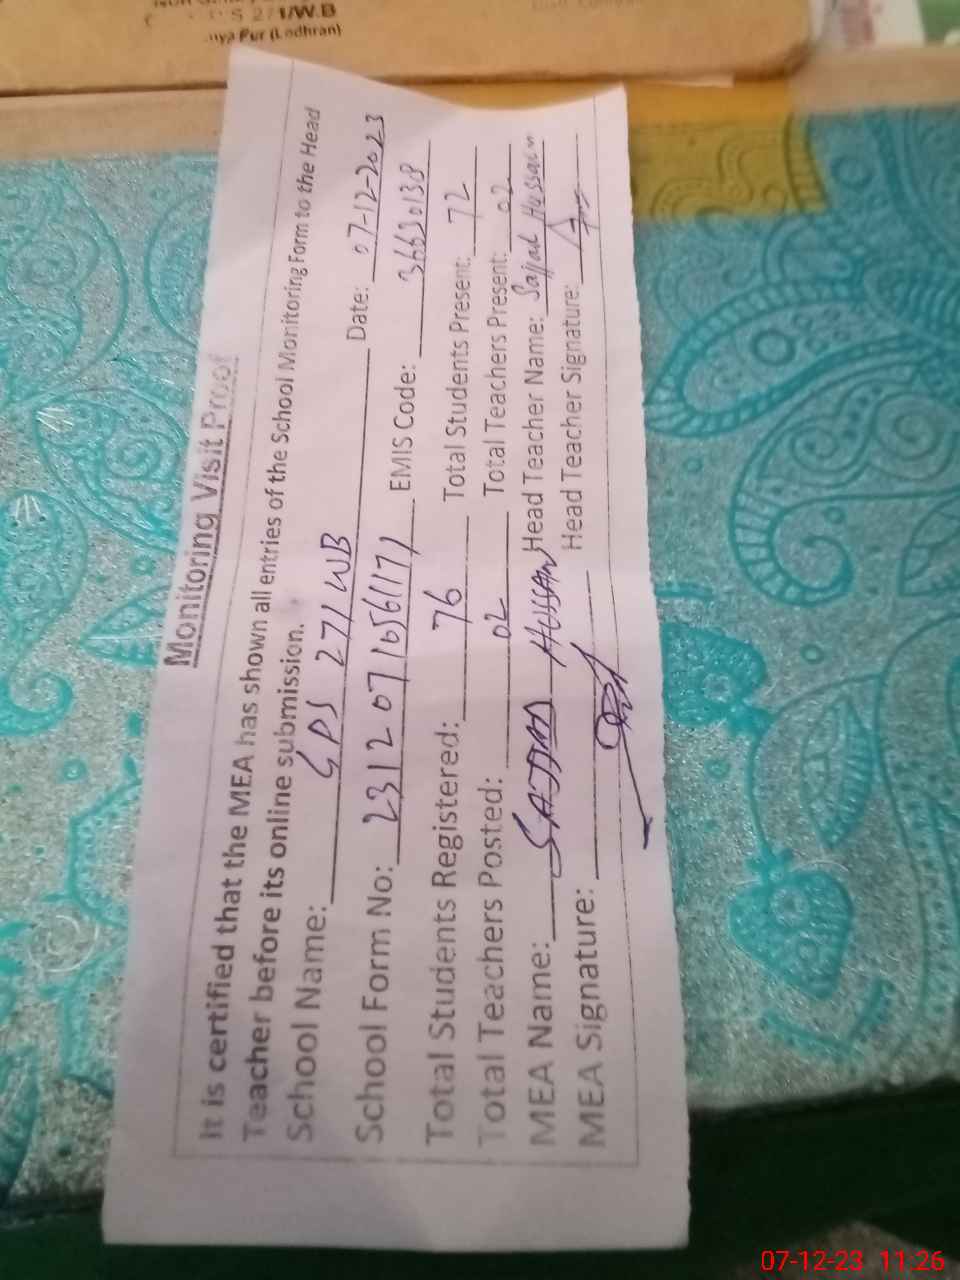 S 271/W.B
Pur (Lodhran)
Monitoring Visit Proof
It is certified that the MEA has shown all entries of the School Monitoring Form to the Head
Teacher before its online submission.
School Name: GPS 271 WB Date: 07-12-2023
School Form No: 231207 10561171 EMIS Code: 36630138
Total Students Registered: 76 Total Students Present: 72
Total Teachers Posted: 02 Total Teachers Present: 02
MEA Name: SAJJAD HUSSAIN Head Teacher Name: Sajjad Hussain
MEA Signature: Head Teacher Signature:
07-12-23 11:26